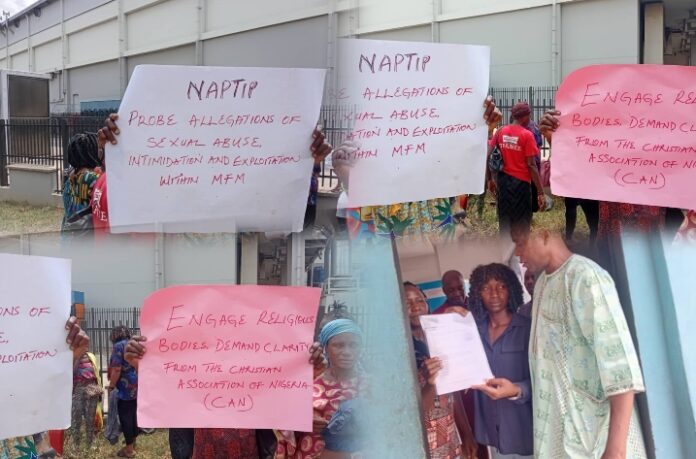 NAPTIP
PROBE ALLEGATIONS OF
SEXUAL ABUSE,
INTIMIDATION AND EXPLOITATION
WITHIN MFM
NAPTIP
ALLEGATIONS OF
XUAL ABUSE,
ATION AND EXPLOITATION
THIN MFM
ENGAGE RELIG
BODIES. DEMAND CLAR
FROM THE CHRISTIAN
ASSOCIATION OF NI
(CAN)
ATIONS OF
PLOITATION
ENGAGE RELIGIOUS
BODIES. DEMAND CLARITY
FROM THE CHRISTIAN
ASSOCIATION OF NIGERIA
(CAN)